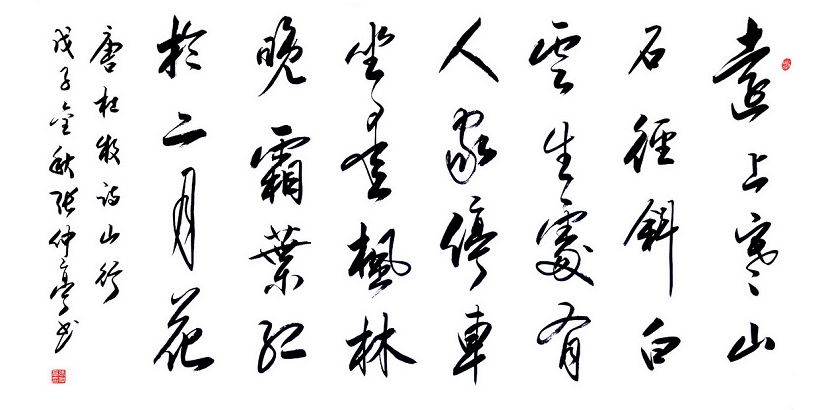 遠上寒山
石徑斜白
雲生處有
人家停車
坐愛楓林
晚霜葉紅
於二月花
唐杜牧詩山行
戊子金秋張仲亭书